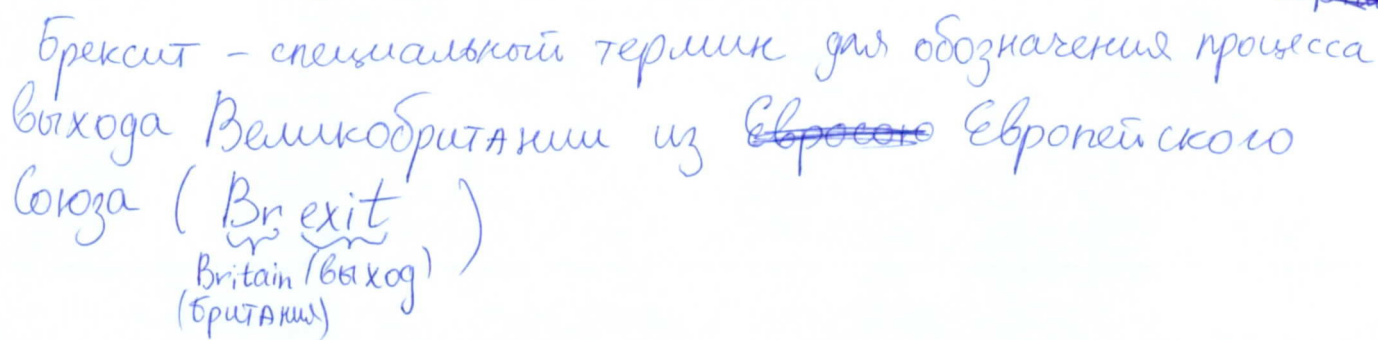 Брексит - специальный термин для обозначения процесса
выхода Великобритании из Евросою Европейского
Союза (Brexit)
Britain (выход)
(Британия)